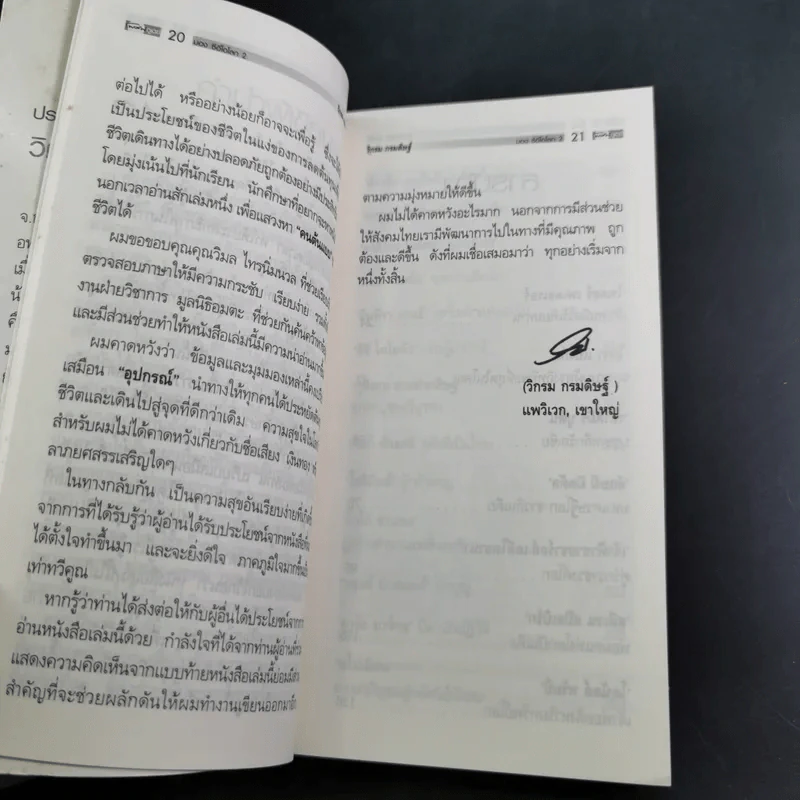 20 มอง ซีอีโอโลก 2
ต่อไปได้ หรืออย่างน้อยก็อาจจะเพื่อรู้
เป็นประโยชน์ของชีวิตในแง่ของการลดต้นทุน
ชีวิตเดินทางได้อย่างปลอดภัยถูกต้องอย่างมี
โดยมุ่งเน้นไปที่นักเรียน นักศึกษาที่อยาก
นอกเวลาอ่านสักเล่มหนึ่ง เพื่อแสวงหา "คนต้นแบบ"
ชีวิตได้
ผมขอขอบคุณคุณวิมล ไทรนิ่มนวล ที่ช่วย
ตรวจสอบภาษาให้มีความกระชับ เรียบง่าย รวมทั้ง
งานฝ่ายวิชาการ มูลนิธิอมตะ ที่ช่วยกันค้นคว้า
และมีส่วนช่วยทำให้หนังสือเล่มนี้มีความน่าอ่าน
ผมคาดหวังว่า ข้อมูลและมุมมองเหล่านี้คง
เสมือน "อุปกรณ์" นำทางให้ทุกคนได้ประหยัด
ชีวิตและเดินไปสู่จุดที่ดีกว่าเดิม ความสุขใจ
สำหรับผมไม่ได้คาดหวังเกี่ยวกับชื่อเสียง เงินทอง
ลาภยศสรรเสริญใดๆ
ในทางกลับกัน เป็นความสุขอันเรียบง่ายที่
จากการที่ได้รับรู้ว่าผู้อ่านได้รับประโยชน์จากหนังสือ
ได้ตั้งใจทำขึ้นมา และจะยิ่งดีใจ ภาคภูมิใจมากขึ้น
เท่าทวีคูณ
หากรู้ว่าท่านได้ส่งต่อให้กับผู้อื่นได้ประโยชน์จากการ
อ่านหนังสือเล่มนี้ด้วย กำลังใจที่ได้จากท่านผู้อ่าน
แสดงความคิดเห็นจากแบบท้ายหนังสือเล่มนี้ย่อมมี
สำคัญที่จะช่วยผลักดันให้ผมทำงานเขียนออกมา
วิกรม กรมดิษฐ์ มอง ซีอีโอโลก 2 21
ตามความมุ่งหมายให้ดีขึ้น
ผมไม่ได้คาดหวังอะไรมาก นอกจากการมีส่วนช่วย
ให้สังคมไทยเรามีพัฒนาการไปในทางที่มีคุณภาพ ถูก
ต้องและดีขึ้น ดังที่ผมเชื่อเสมอมาว่า ทุกอย่างเริ่มจาก
หนึ่งทั้งสิ้น
(วิกรม กรมดิษฐ์ )
แพวิเวก, เขาใหญ่